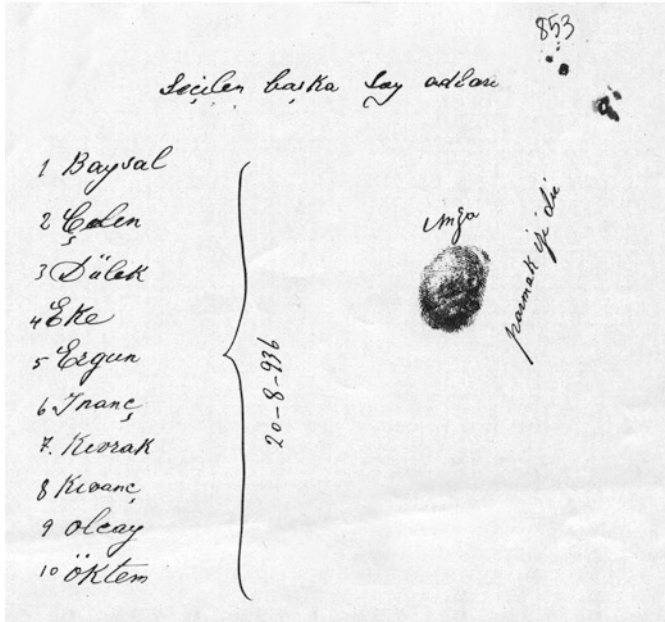 853
Seçilen başka soy adları
1 Baysal
2 Çelen
3 Dülek
4 Eke
5 Ergun
6 Inanç
7. Kıvrak
8 Kıvanç
9 olcay
10 öktem
20-8-936
imza
parmak izi dir